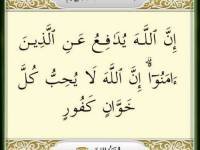 إِنَّ ٱللَّهَ يُدَٰفِعُ عَنِ ٱلَّذِينَ
ءَامَنُوٓا۟ ۗ إِنَّ ٱللَّهَ لَا يُحِبُّ كُلَّ
خَوَّانٍ كَفُورٍ